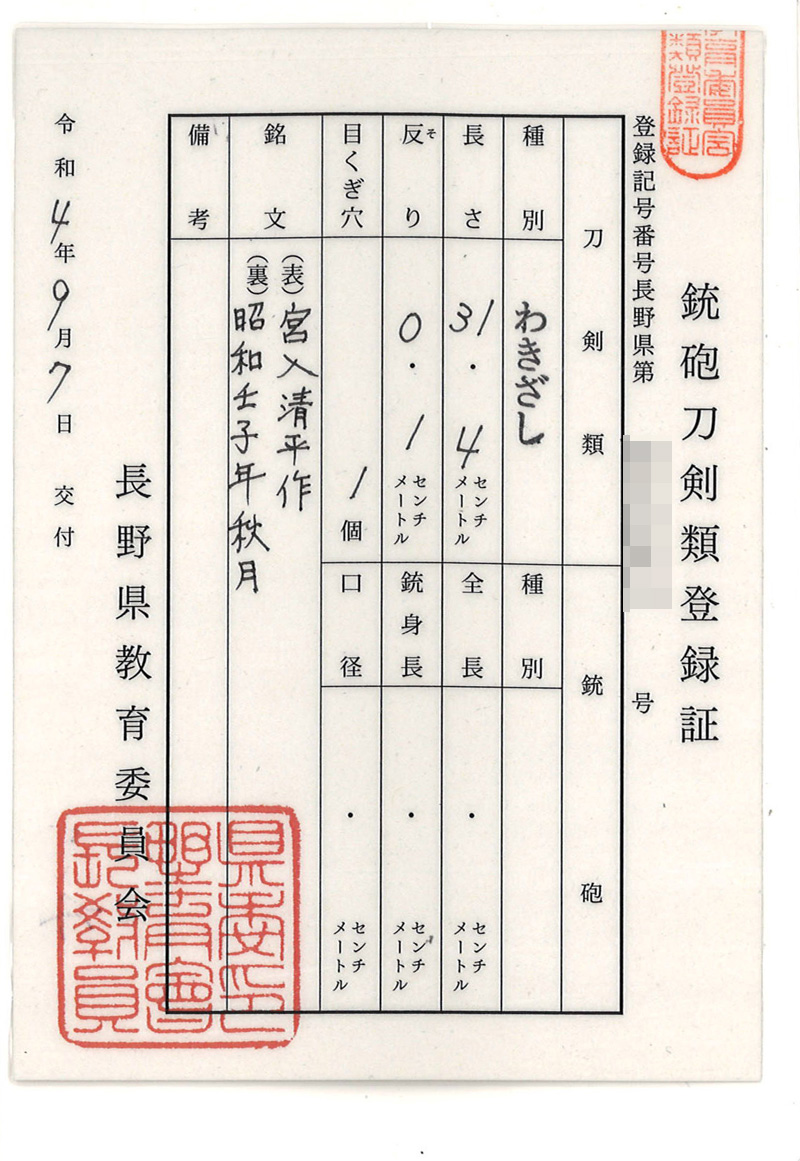 銃砲刀剣類登録証
登録記号番号長野県第 号
刀剣類
種別 わきざし
長さ 31.4 センチメートル
反り そ 0.1 センチメートル
目くぎ穴 1個
銘文 (表)宮入清平作
(裏)昭和壬子年秋月
備考
銃砲
種別
全長 . センチメートル
銃身長 . センチメートル
口径 . センチメートル
長野県教育委員会
令和4年9月7日 交付